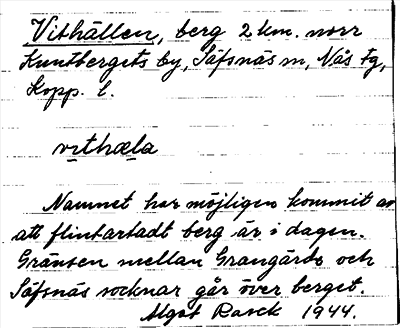 Vithällen, berg 2 km. norr
Kuntbergets by, Säfsnäs sn, Nås fg,
Kopp. l.
vɩthæla
Namnet har möjligen kommit av
att flintartadt berg är i dagen.
Gränsen mellan Grangärde och
Säfsnäs socknar går över berget.
Algot Rasck 1944.